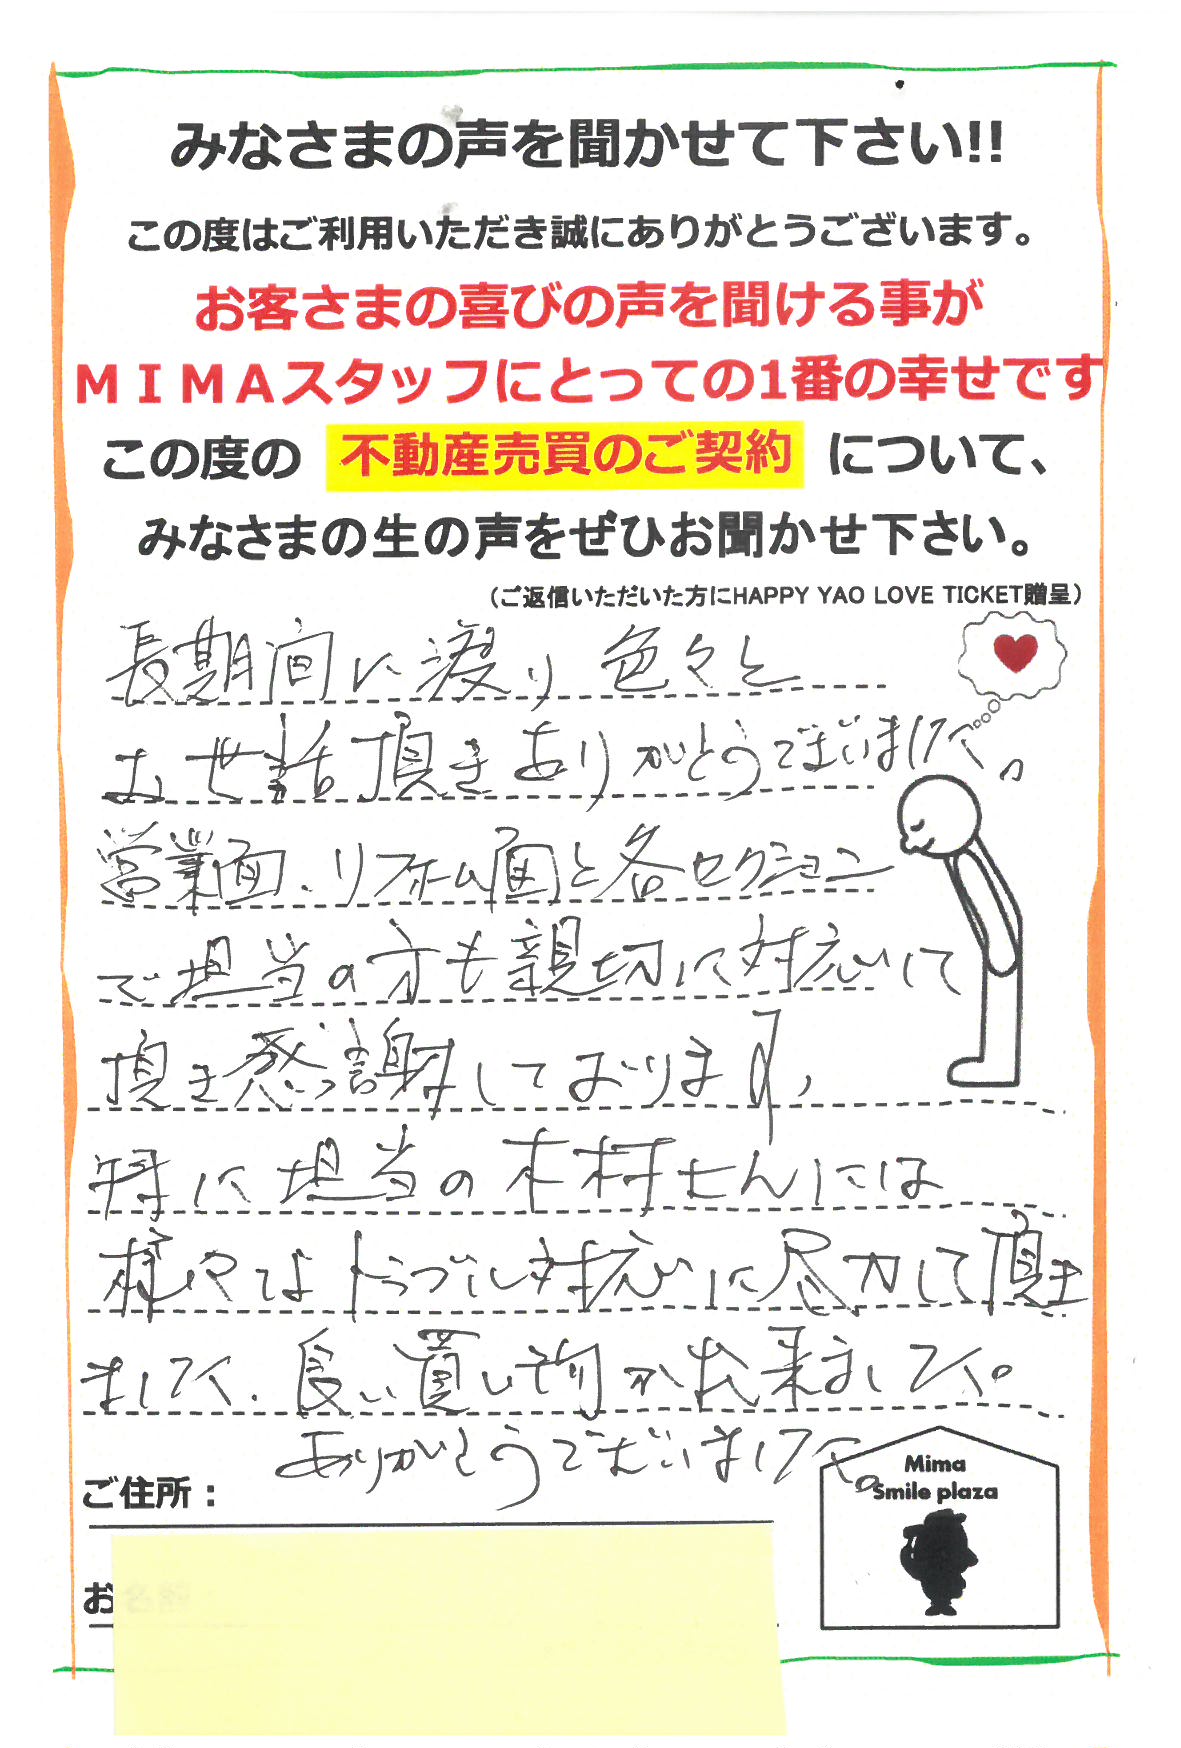 みなさまの声を聞かせて下さい!!
この度はご利用いただき誠にありがとうございます。
お客さまの喜びの声を聞ける事が
ＭＩＭＡスタッフにとっての1番の幸せです
この度の 不動産売買のご契約 について、
みなさまの生の声をぜひお聞かせ下さい。
（ご返信いただいた方にHAPPY YAO LOVE TICKET贈呈）
長期間に渡り 色々と
お世話頂きありがとうございました。
営業面、リフォーム面と各セクション
で担当の方も親切に対応して
頂き感謝しております。
特に担当の木村さんには
様々なトラブル対応に尽力して頂き
ました。良い買い物が出来ました。
ありがとうございました。
Mima
Smile plaza
ご住所：
お